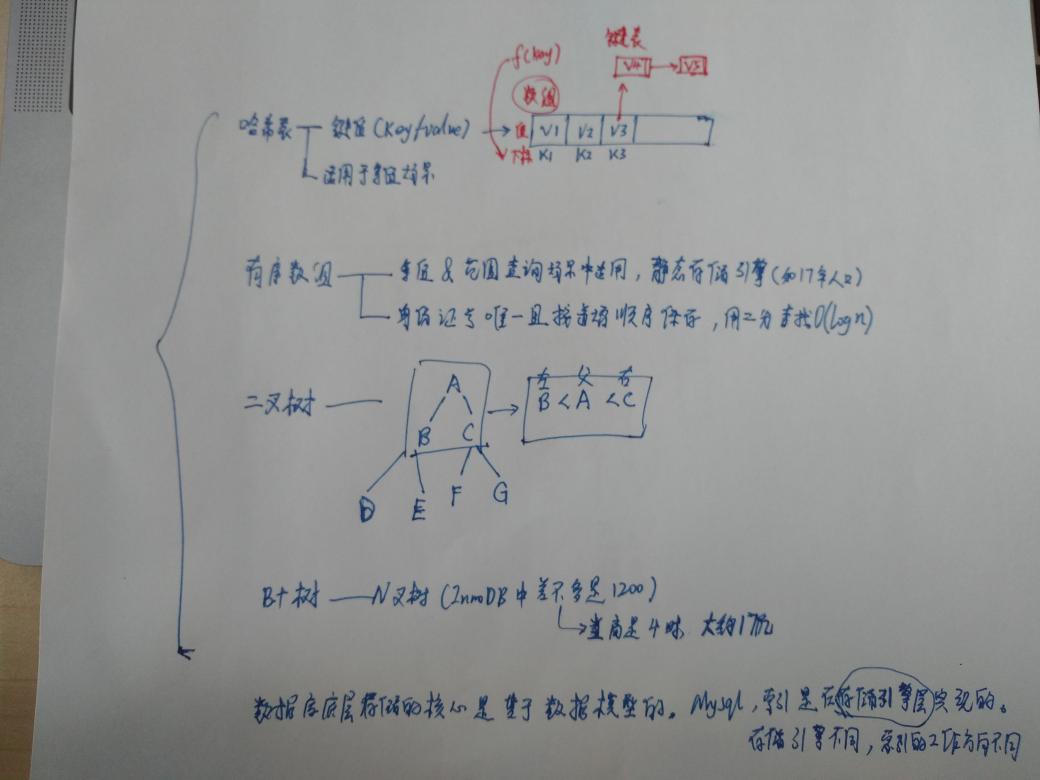 f(key)
链表
V4 V5
数组
哈希表 键值(key/value) 值 V1 V2 V3
下标 K1 K2 K3
适用于等值场景
有序数组 等值&范围查询场景中适用,静态存储引擎(如17年人口)
身份证号唯一且按递增顺序保存,用二分查找O(logn)
二叉树
A
B C
D E F G
左 父 右
B < A < C
B+树 N叉树(InnoDB中差不多是1200)
当高是4时 大约17亿
数据库底层存储的核心是基于数据模型的。Mysql,索引是在存储引擎层实现的。
存储引擎不同,索引的工作方向不同